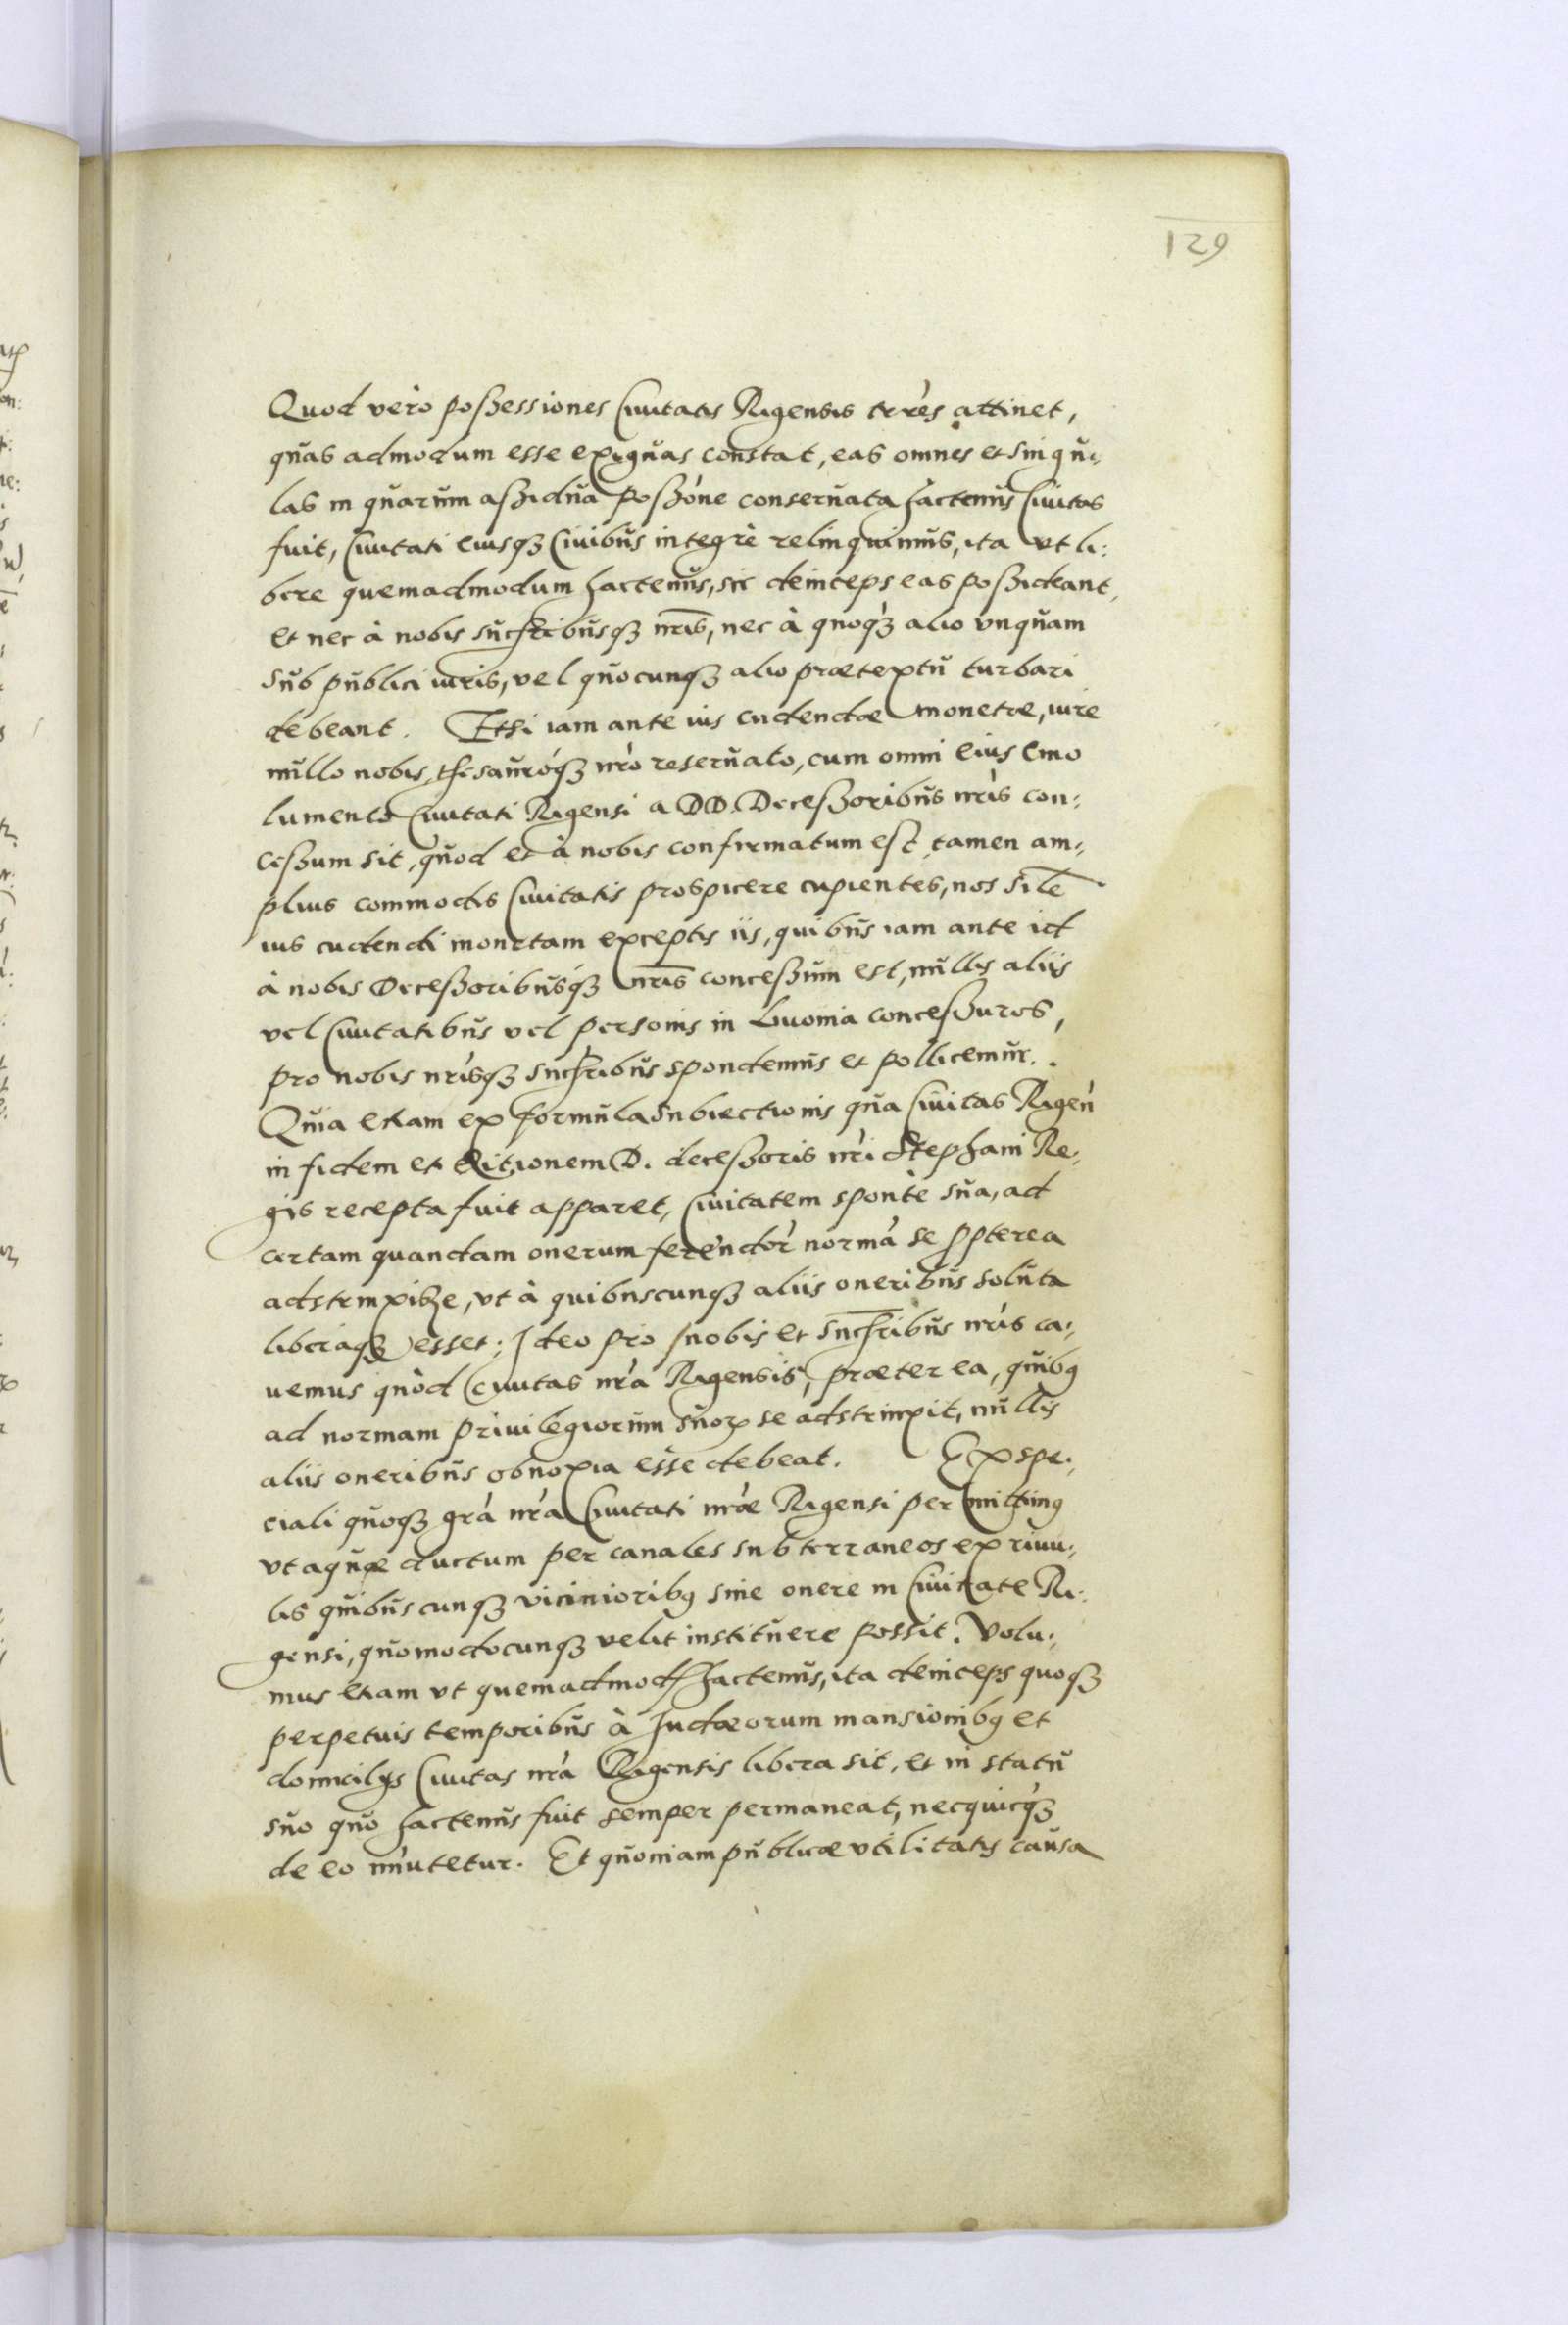 129
Quod verò possessiones Ciuitatis Rigensis trr̃es attinet,
quas admodum esse exiguas constat, eas omnes et singu:
las in quarum assidua poss̃one conseruata hactenus Ciuitas
fuit, Ciuitati eiusq̃ Ciuibus integrè relinquimus, ita vt li:
bere quemadmodum hactenus, sic deinceps eas possideant,
et nec à nobis succr̃ibusq̃ nr̃is, nec à quoq̃ alio vnquam
sub publici iuris, vel quocunq̃ alio prætextu turbari
debeant. Etsi iam ante ius cudendæ monetæ, iure
nullo nobis, thesauróq̃ nr̃o reseruato, cum omni eius emo
lumento Ciuitati Rigensi a DD. Decessoribus nr̃is con:
cessum sit, quod et à nobis confirmatum est, tamen am:
plius commodis Ciuitatis prospicere cupientes, nos sil̃e
ius cudendi monetam exceptis iis, quibus iam ante id
à nobis Decessoribusq̃ nr̃is concessum est, nullis aliis
vel Ciuitatibus vel personis in Liuonia concessuros,
pro nobis nr̃isq̃ succr̃ibus spondemus et pollicemur.
Quia etiam ex formula subiectionis qua Ciuitas Rigeñ
in fidem et ditionem D. decessoris nr̃i Stephani Re:
gis recepta fuit apparet, Ciuitatem sponte sua, ad
certam quandam onerum ferendor̃ normã se p̃pterea
adstrinxisse, vt à quibuscunq̃ aliis oneribus soluta
liberaq̃ esset; Ideo pro nobis et succr̃ibus nr̃is ca:
uemus quòd Ciuitas nr̃a Rigensis, præter ea, quibus
ad normam priuilegiorum suor̃ se adstrinxit, nullis
aliis oneribus obnoxia esse debeat. Ex spe:
ciali quoq̃ gr̃a nr̃a Ciuitati nr̃æ Rigensi permittimus
vt aquæ ductum per canales subterraneos ex riuu:
lis quibuscunq̃ vicinioribus sine onere in Ciuitate Ri:
gensi, quomodocunq̃ velit instituere possit. Volu:
mus etiam vt quemadmod̃ hactenus, ita deinceps quoq̃
perpetuis temporibus à Iudæorum mansionibus et
domicilijs Ciuitas nr̃a Rigensis libera sit, et in statu
suo quo hactenus fuit semper permaneat, nec quicq̃
de eo mutetur. Et quoniam publicæ vtilitatis causa